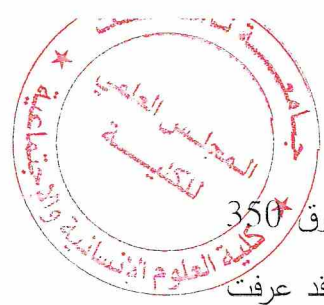 جامعـــــة
المجلس العلمي
للكليـــــة
كلية العلوم الإنسانية والاجتماعية
350
فد عرفت